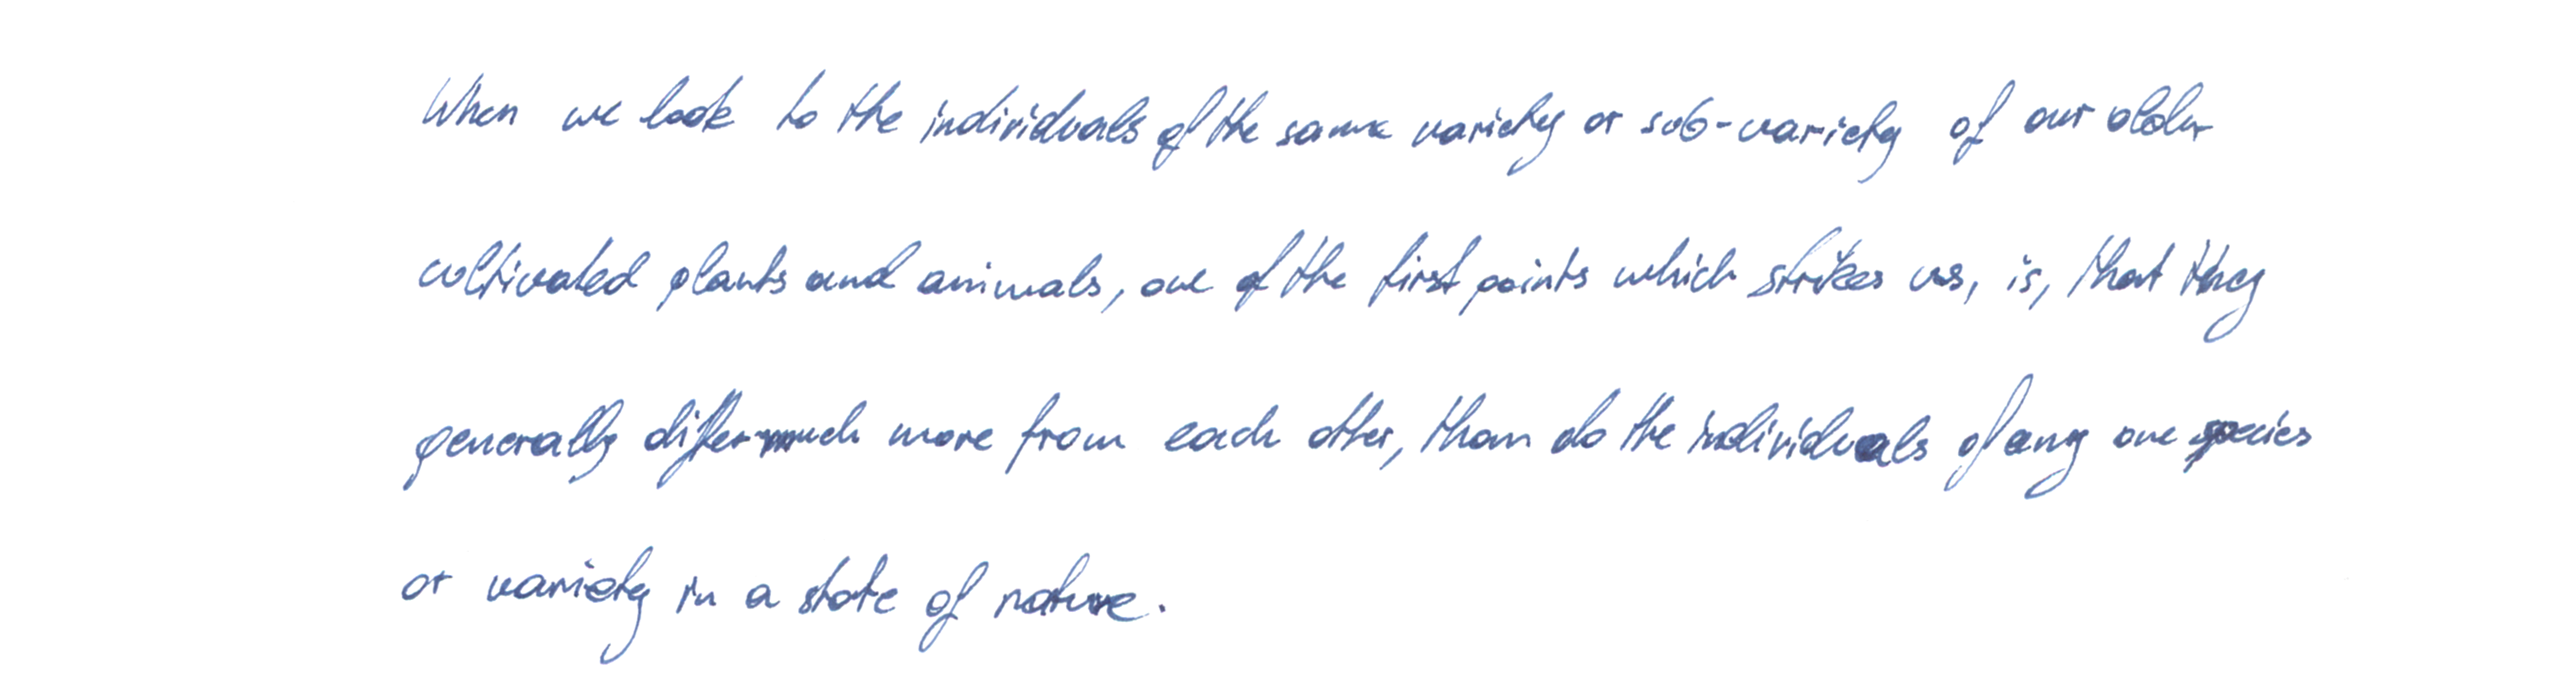 When we look to the individuals of the same variety or sub-variety of our older
cultivated plants and animals, one of the first points which strikes us, is, that they
generally differ much more from each other, than do the individuals of any one species
or variety in a state of nature.